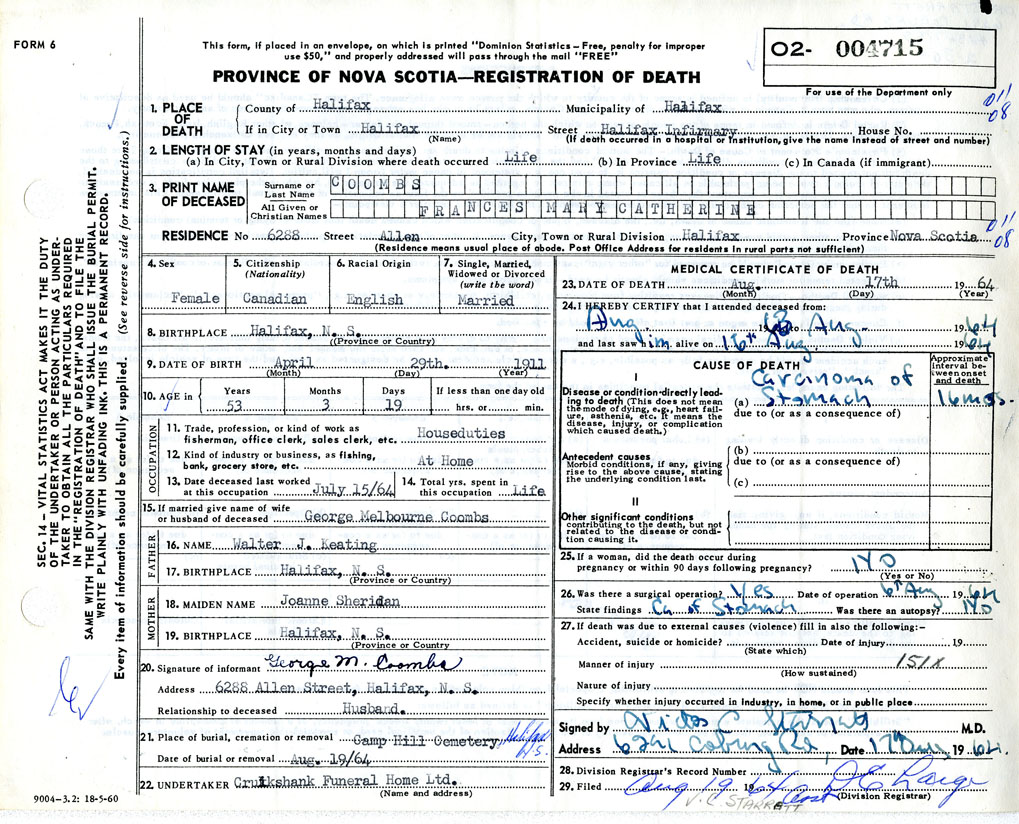 FORM 6
This form, if placed in an envelope, on which is printed "Dominion Statistics – Free, penalty for improper
use $50," and properly addressed will pass through the mail "FREE"
PROVINCE OF NOVA SCOTIA—REGISTRATION OF DEATH
02- 004715
For use of the Department only
011
08
SEC. 14 – VITAL STATISTICS ACT MAKES IT THE DUTY
OF THE UNDERTAKER OR PERSON ACTING AS UNDER-
TAKER TO OBTAIN ALL THE PARTICULARS REQUIRED
IN THE "REGISTRATION OF DEATH" AND TO FILE THE
SAME WITH THE DIVISION REGISTRAR WHO SHALL ISSUE THE BURIAL PERMIT.
WRITE PLAINLY WITH UNFADING INK. THIS IS A PERMANENT RECORD.
Every item of information should be carefully supplied. (See reverse side for instructions.)
1. PLACE OF DEATH
County of Halifax Municipality of Halifax
If in City or Town Halifax Street Halifax Infirmary House No.
(Name) (If death occurred in a hospital or institution, give the name instead of street and number)
2. LENGTH OF STAY (in years, months and days)
(a) In City, Town or Rural Division where death occurred Life (b) In Province Life (c) In Canada (if immigrant)
3. PRINT NAME OF DECEASED
Surname or Last Name COOMBS
All Given or Christian Names FRANCES MARY CATHERINE
RESIDENCE No 6288 Street Allen City, Town or Rural Division Halifax Province Nova Scotia
011
08
(Residence means usual place of abode. Post Office Address for residents in rural parts not sufficient)
4. Sex
Female
5. Citizenship
(Nationality)
Canadian
6. Racial Origin
English
7. Single, Married,
Widowed or Divorced
(write the word)
Married
8. BIRTHPLACE Halifax, N. S.
(Province or Country)
9. DATE OF BIRTH April 29th. 1911
(Month) (Day) (Year)
10. AGE in Years 53 Months 3 Days 19 If less than one day old hrs. or min.
OCCUPATION
11. Trade, profession, or kind of work as
fisherman, office clerk, sales clerk, etc. Houseduties
12. Kind of industry or business, as fishing,
bank, grocery store, etc. At Home
13. Date deceased last worked
at this occupation July 15/64
14. Total yrs. spent in
this occupation Life
15. If married give name of wife
or husband of deceased George Melbourne Coombs
FATHER
16. NAME Walter J. Keating
17. BIRTHPLACE Halifax, N. S.
(Province or Country)
MOTHER
18. MAIDEN NAME Joanne Sheridan
19. BIRTHPLACE Halifax, N. S.
(Province or Country)
20. Signature of informant George M. Coombs
Address 6288 Allen Street, Halifax, N. S.
Relationship to deceased Husband.
21. Place of burial, cremation or removal Camp Hill Cemetery, Halifax N.S.
Date of burial or removal Aug. 19/64
22. UNDERTAKER Cruikshank Funeral Home Ltd.
(Name and address)
9004–3.2: 18-5-60
MEDICAL CERTIFICATE OF DEATH
23. DATE OF DEATH Aug. 17th 1964
(Month) (Day) (Year)
24. I HEREBY CERTIFY that I attended deceased from:
Aug. 1963 to Aug. 1964
and last saw him alive on 16th Aug. 1964
CAUSE OF DEATH
Approximate
interval be-
tween onset
and death
I
Disease or condition directly lead-
ing to death (This does not mean
the mode of dying, e.g., heart fail-
ure, asthenia, etc. It means the
disease, injury, or complication
which caused death.)
(a) Carcinoma of
Stomach 16 mos.
due to (or as a consequence of)
Antecedent causes
Morbid conditions, if any, giving
rise to the above cause, stating
the underlying condition last.
(b)
due to (or as a consequence of)
(c)
II
Other significant conditions
contributing to the death, but not
related to the disease or condi-
tion causing it.
25. If a woman, did the death occur during
pregnancy or within 90 days following pregnancy? No
(Yes or No)
26. Was there a surgical operation? Yes Date of operation 6th Aug 1964
State findings Ca of Stomach Was there an autopsy? No
27. If death was due to external causes (violence) fill in also the following:–
Accident, suicide or homicide? Date of injury 19
(State which)
Manner of injury 151X
(How sustained)
Nature of injury
Specify whether injury occurred in industry, in home, or in public place
Signed by Starratt M.D.
Address Coburg Rd, Date 17th Aug 1964.
28. Division Registrar's Record Number
29. Filed Aug 19 1964
(Division Registrar)
V. C. STARRATT